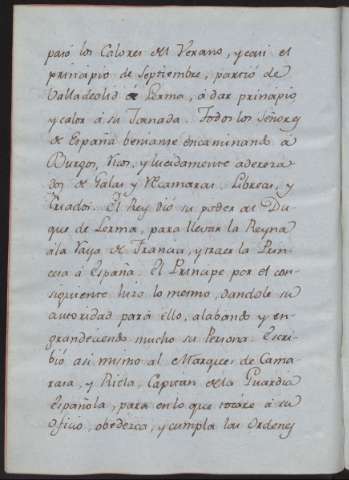 pasó los Calores del Verano, y casi el
principio de Septiembre, partió de
Valladolid à Lerma, à dar principio
y calor à su Jornada. Todos los Señores
de España benianse encaminando à
Burgos, ricos, y lucidamente adereza-
dos de Galas y Recamaras, Libreas, y
Criados. El Rey dió su poder al Du-
que de Lerma, para llevar la Reyna
à la Raya de Francia, y traer la Prin-
cesa à España. El Principe por el con-
siguiente hizo lo mismo, dandole su
autoridad para ello, alabando y en-
grandeciendo mucho su Persona. Escri-
bió asi mismo al Marques de Cama-
rasa, y Ricla, Capitan de la Guardia
Española, para en lo que tocáre à su
oficio, obedezca, y cumpla las Ordenes